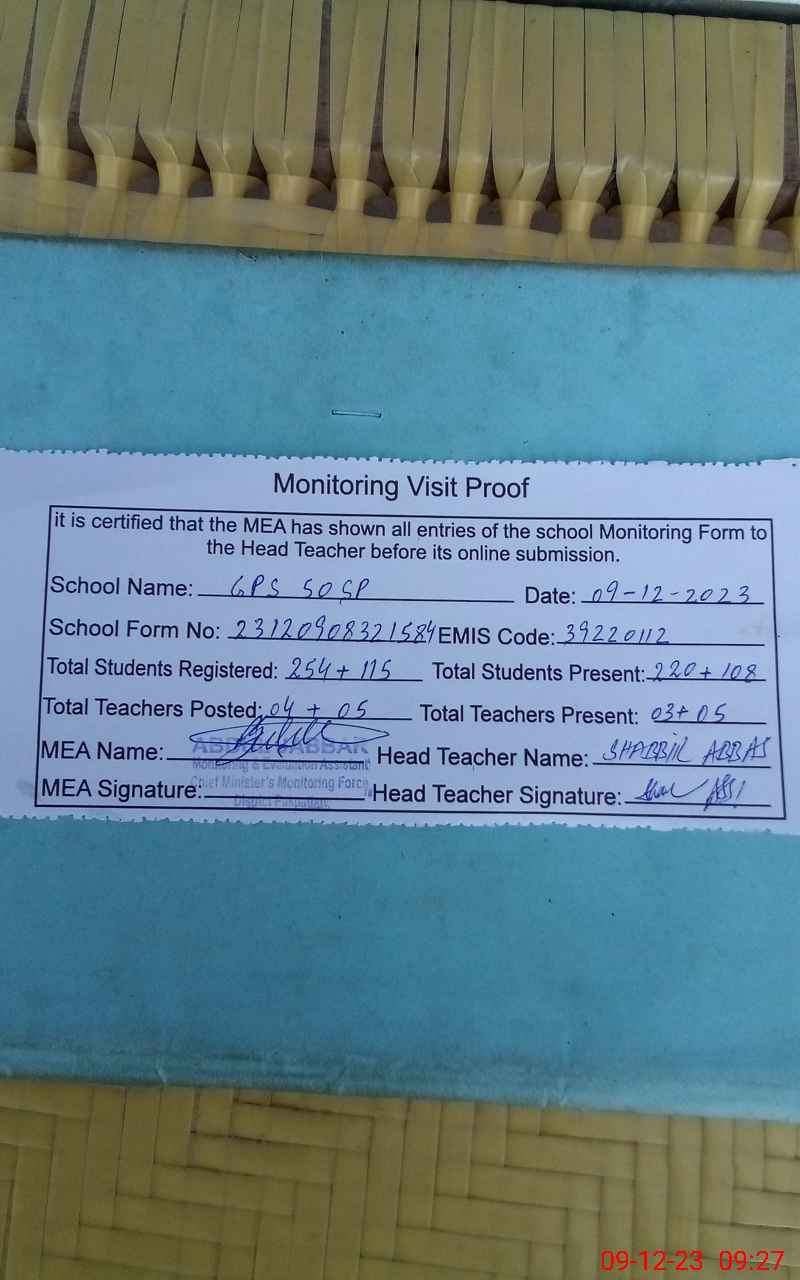 Monitoring Visit Proof
it is certified that the MEA has shown all entries of the school Monitoring Form to
the Head Teacher before its online submission.
School Name: GPS 50 SP Date: 09-12-2023
School Form No: 23120908321584 EMIS Code: 39220112
Total Students Registered: 254 + 115 Total Students Present: 220 + 108
Total Teachers Posted: 04 + 05 Total Teachers Present: 03 + 05
MEA Name: ABDUL JABBAR Head Teacher Name: SHABBIR ABBAS
Monitoring & Evaluation Assistant
MEA Signature: Chief Minister's Monitoring Force Head Teacher Signature:
District
09-12-23 09:27